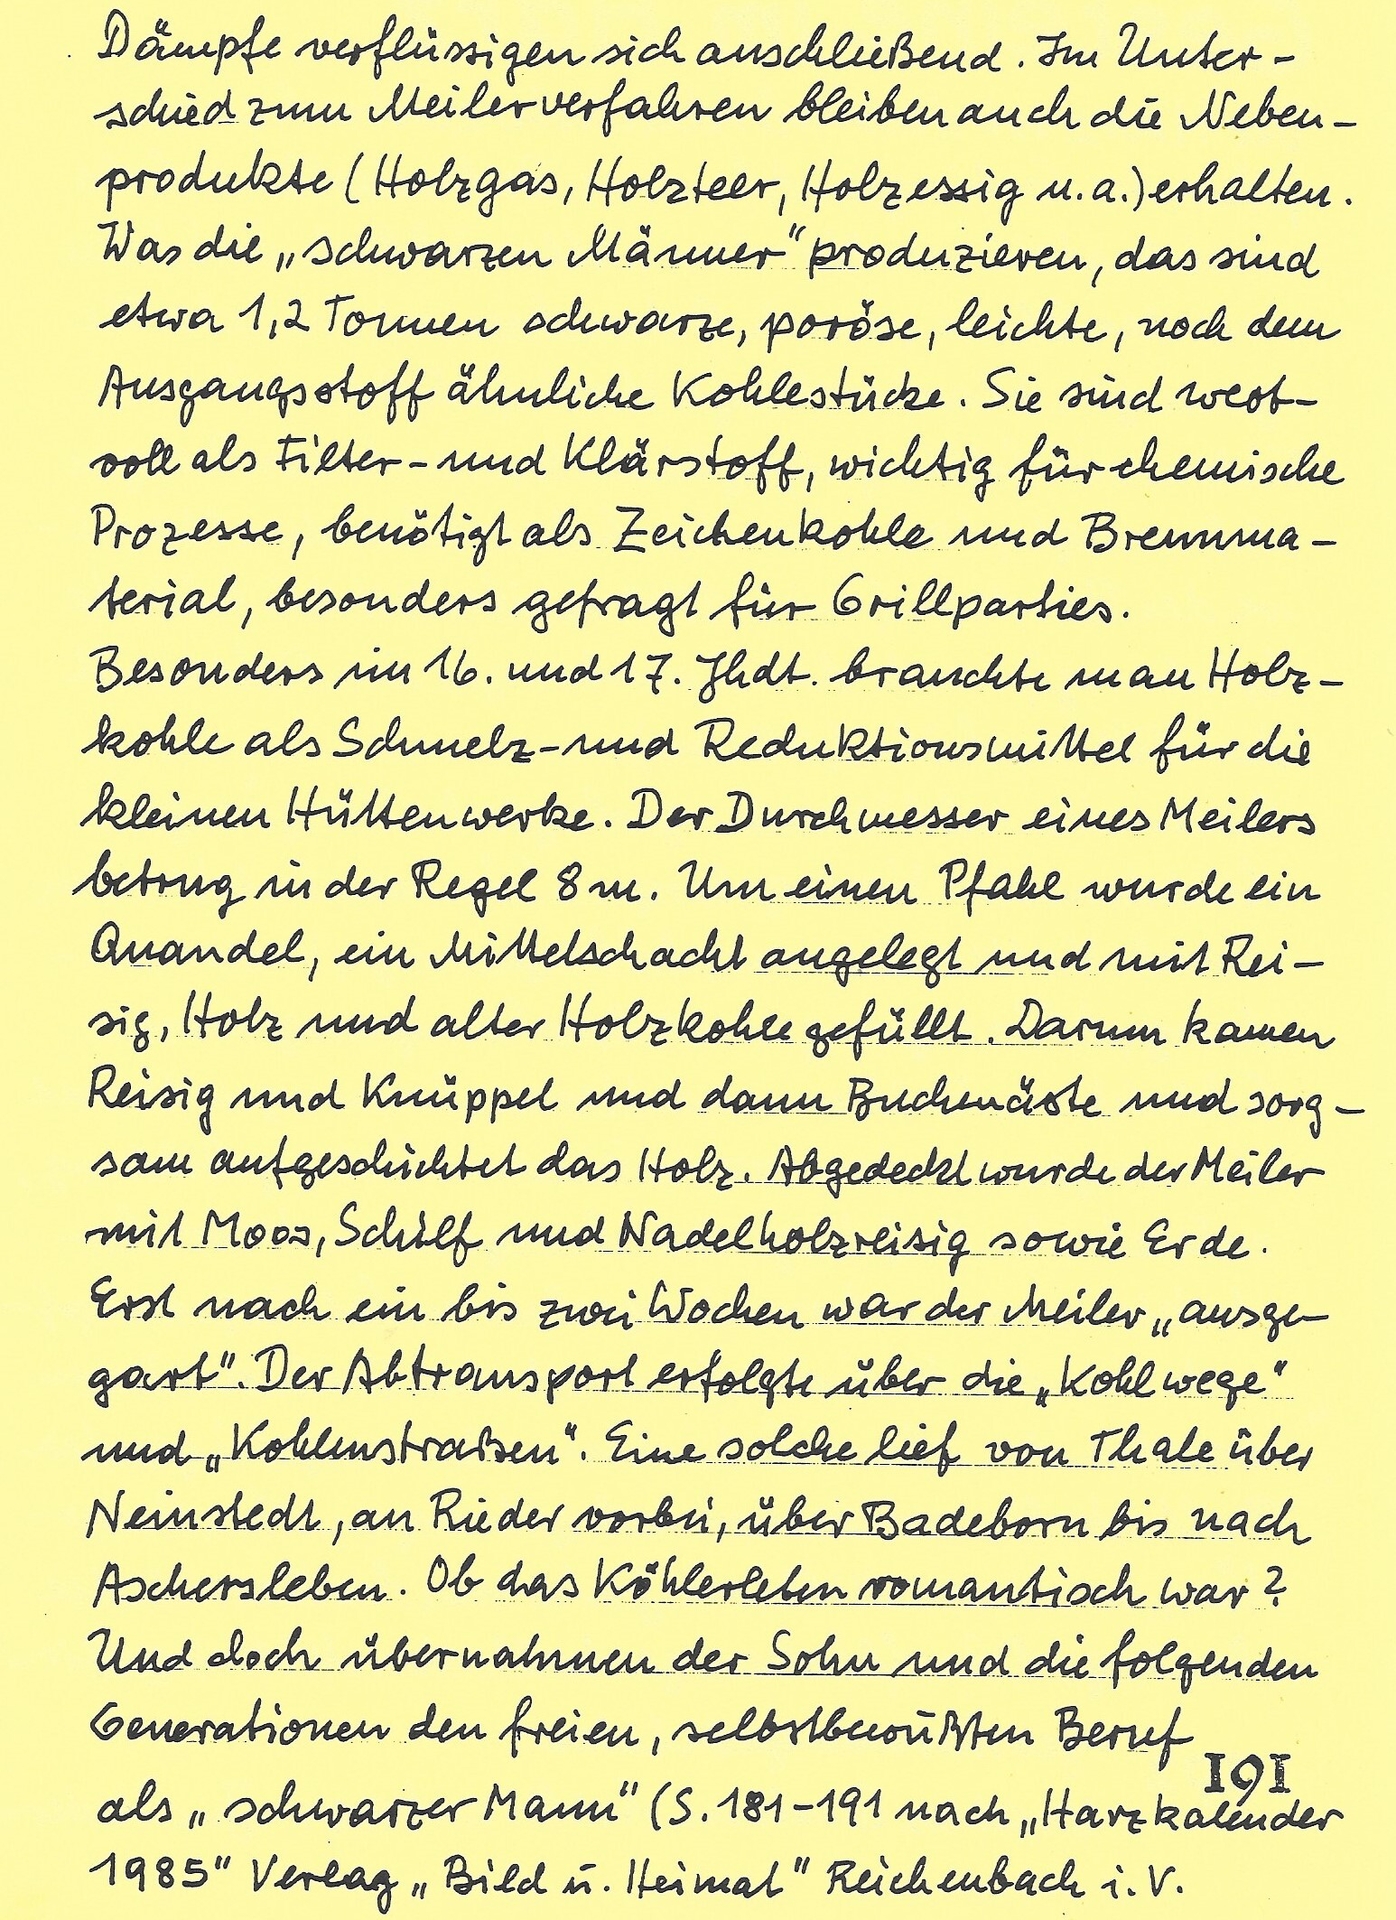 Dämpfe verflüssigen sich anschließend. Im Unter-
schied zum Meilerverfahren bleiben auch die Neben-
produkte (Holzgas, Holzteer, Holzessig u.a.) erhalten.
Was die „schwarzen Männer" produzieren, das sind
etwa 1,2 Tonnen schwarze, poröse, leichte, noch dem
Ausgangsstoff ähnliche Kohlestücke. Sie sind wert-
voll als Filter- und Klärstoff, wichtig für chemische
Prozesse, benötigt als Zeichenkohle und Brennma-
terial, besonders gefragt für Grillparties.
Besonders im 16. und 17. Jhdt. brauchte man Holz-
kohle als Schmelz- und Reduktionsmittel für die
kleinen Hüttenwerke. Der Durchmesser eines Meilers
betrug in der Regel 8 m. Um einen Pfahl wurde ein
Quandel, ein Mittelschacht angelegt und mit Rei-
sig, Holz und alter Holzkohle gefüllt. Darum kamen
Reisig und Knüppel und dann Buchenäste und sorg-
sam aufgeschichtet das Holz. Abgedeckt wurde der Meiler
mit Moos, Schilf und Nadelholzreisig sowie Erde.
Erst nach ein bis zwei Wochen war der Meiler „ausge-
gart". Der Abtransport erfolgte über die „Kohlwege"
und „Kohlenstraßen". Eine solche lief von Thale über
Neinstedt, an Rieder vorbei, über Badeborn bis nach
Aschersleben. Ob das Köhlerleben romantisch war?
Und doch übernahmen der Sohn und die folgenden
Generationen den freien, selbstbewußten Beruf
191
als „schwarzer Mann" (S. 181-191 nach „Harzkalender
1985" Verlag „Bild u. Heimat" Reichenbach i. V.